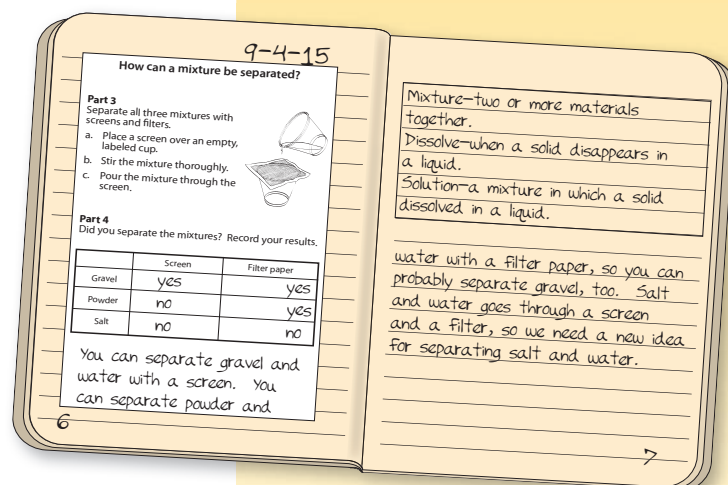 9-4-15
How can a mixture be separated?
Part 3
Separate all three mixtures with
screens and filters.
a. Place a screen over an empty,
labeled cup.
b. Stir the mixture thoroughly.
c. Pour the mixture through the
screen.
Part 4
Did you separate the mixtures? Record your results.
Screen Filter paper
Gravel yes yes
Powder no yes
Salt no no
You can separate gravel and
water with a screen. You
can separate powder and
6
Mixture—two or more materials
together.
Dissolve—when a solid disappears in
a liquid.
Solution—a mixture in which a solid
dissolved in a liquid.
water with a filter paper, so you can
probably separate gravel, too. Salt
and water goes through a screen
and a filter, so we need a new idea
for separating salt and water.
7